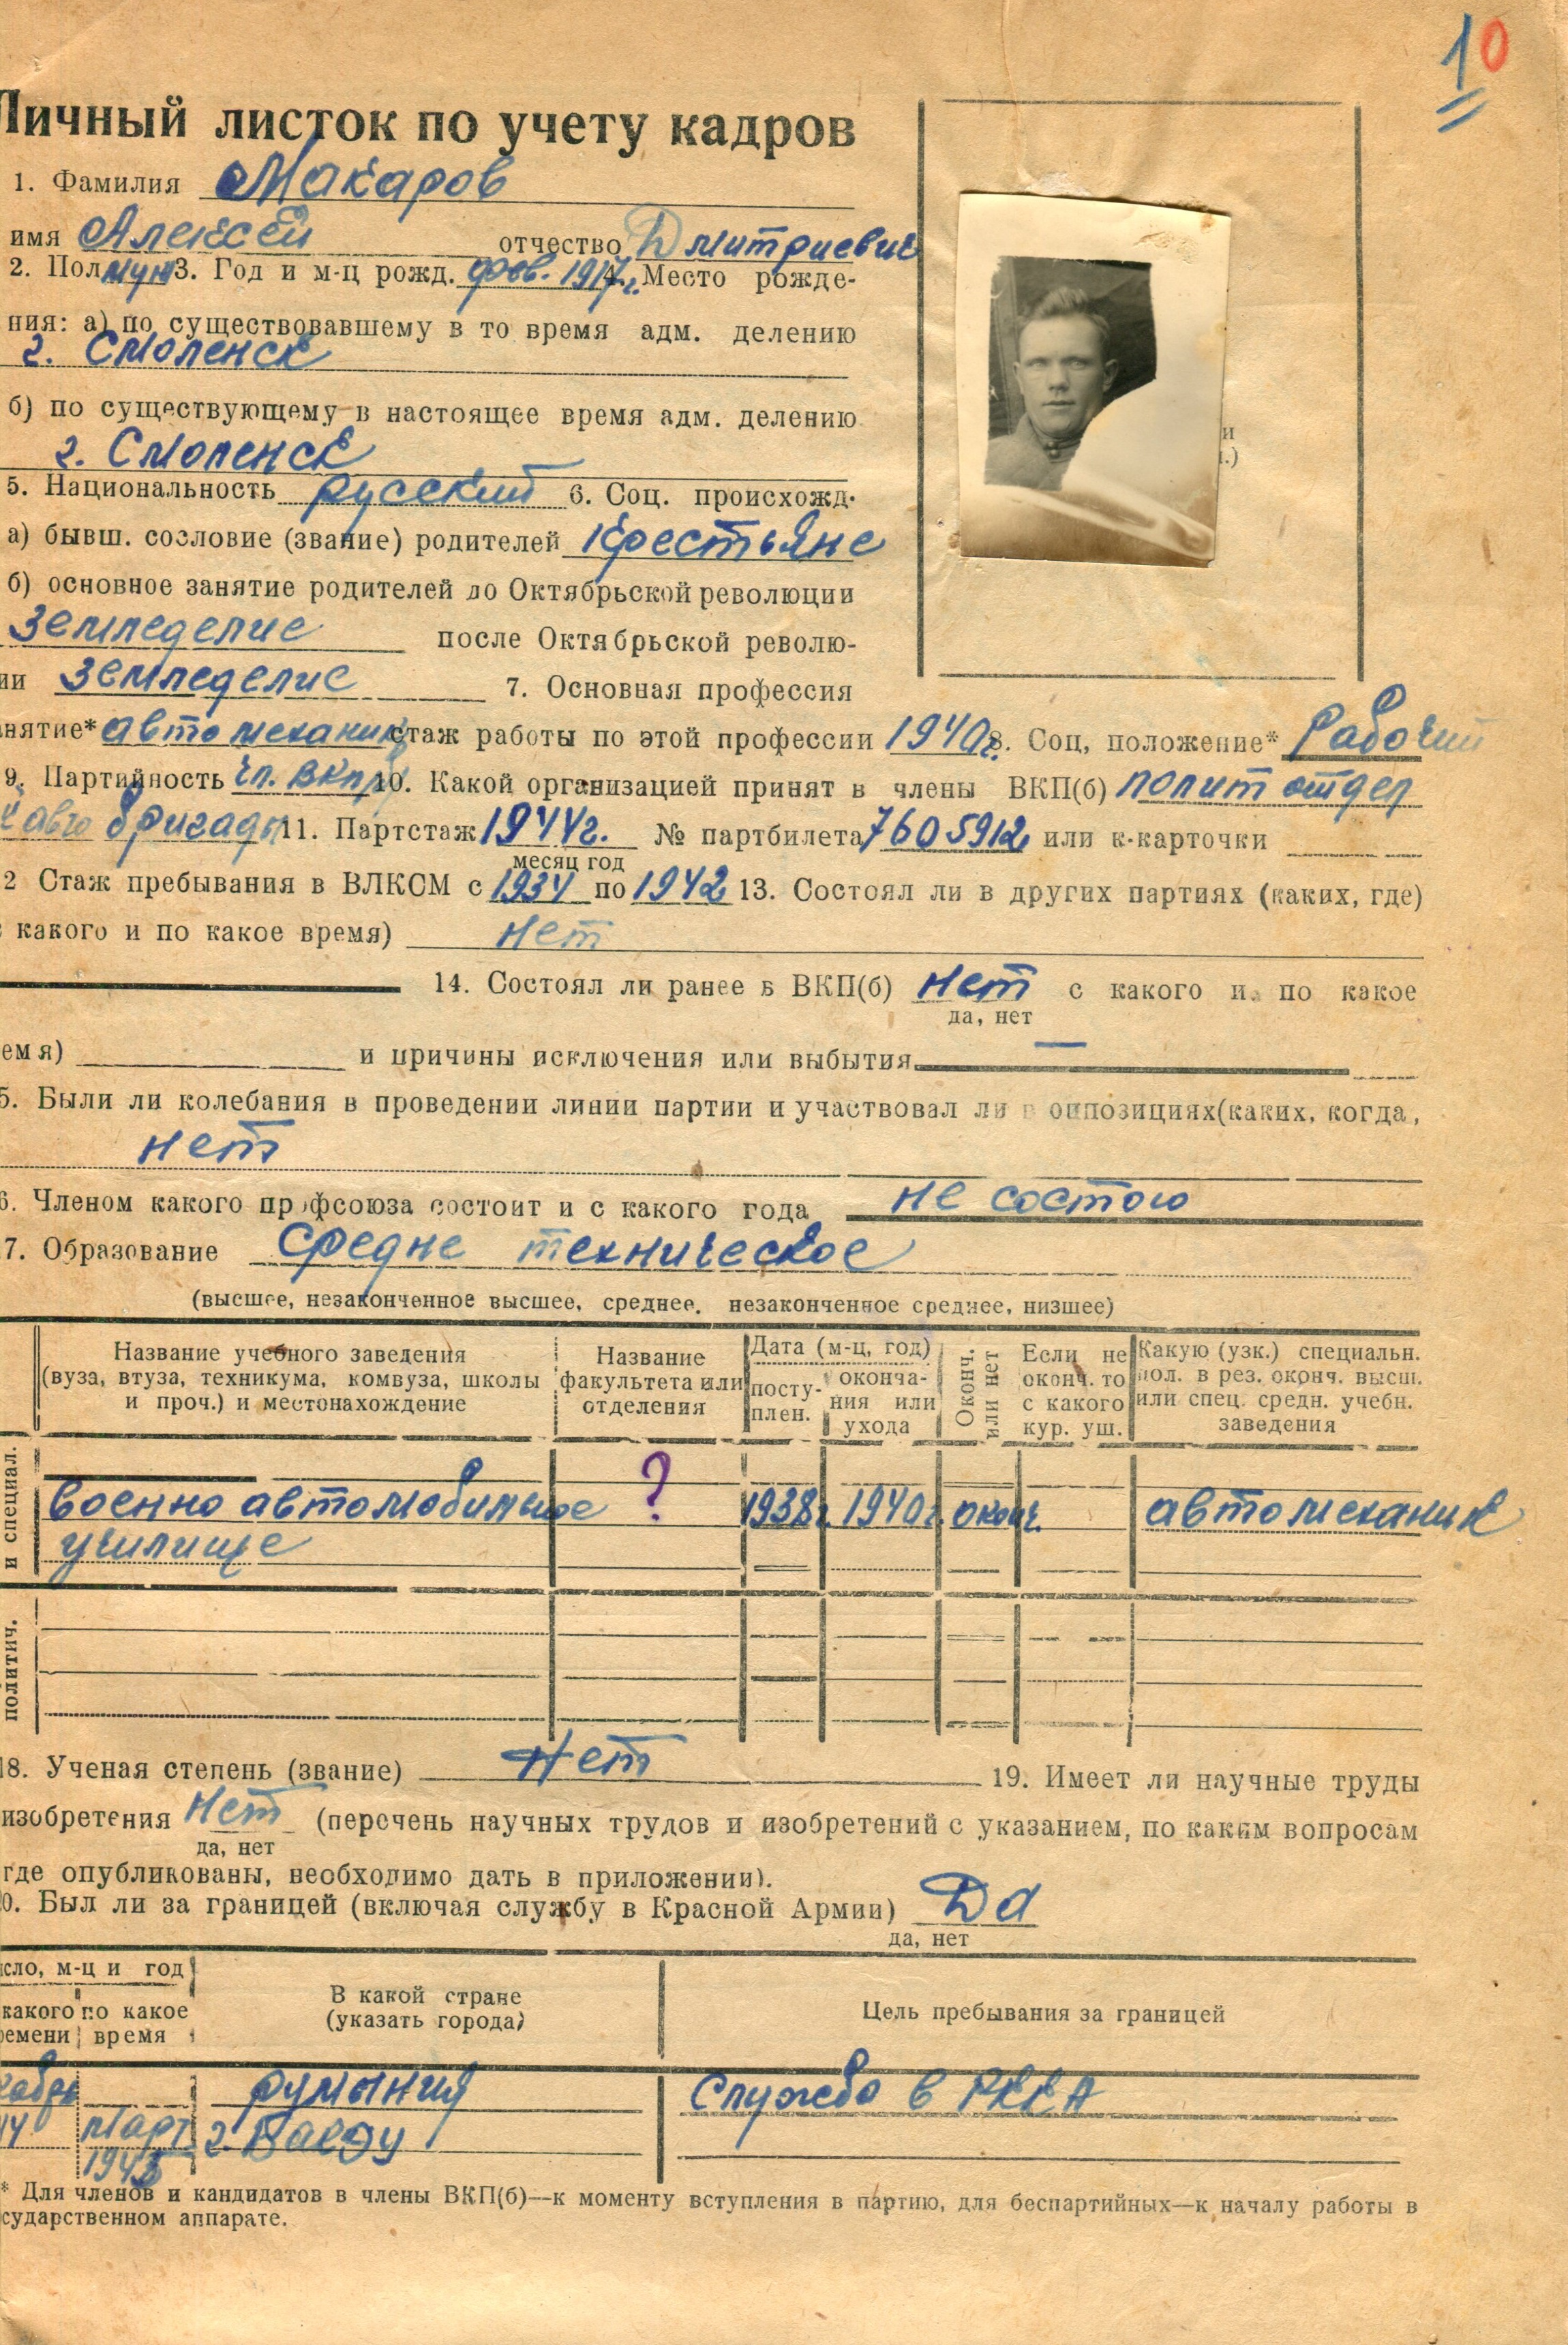 10
Личный листок по учету кадров
1. Фамилия Макаров
имя Алексей отчество Дмитриевич
2. Пол муж 3. Год и м-ц рожд. фев. 1917 г. 4. Место рожде-
ния: а) по существовавшему в то время адм. делению
г. Смоленск
б) по существующему в настоящее время адм. делению
г. Смоленск
5. Национальность русский 6. Соц. происхожд.
а) бывш. сословие (звание) родителей Крестьяне
б) основное занятие родителей до Октябрьской революции
Земледелие после Октябрьской револю-
ии Земледелие 7. Основная профессия
нятие* автомеханик стаж работы по этой профессии 1940 г. 8. Соц. положение* Рабочий
9. Партийность чл. ВКП(б) 10. Какой организацией принят в члены ВКП(б) полит отдел
авто бригады 11. Партстаж 1944 г. № партбилета 7605912 или к-карточки
месяц год
2 Стаж пребывания в ВЛКСМ с 1934 по 1942 13. Состоял ли в других партиях (каких, где)
какого и по какое время) нет
14. Состоял ли ранее в ВКП(б) нет с какого и по какое
да, нет
емя) и причины исключения или выбытия —
5. Были ли колебания в проведении линии партии и участвовал ли в оппозициях (каких, когда,
нет
6. Членом какого профсоюза состоит и с какого года не состою
7. Образование Средне техническое
(высшее, незаконченное высшее, среднее, незаконченное среднее, низшее)
Название учебного заведения (вуза, втуза, техникума, комвуза, школы и проч.) и местонахождение
Название факультета или отделения
Дата (м-ц, год)
посту-плен.
оконча-ния или ухода
Оконч. или нет
Если не оконч. то с какого кур. уш.
Какую (узк.) специальн. пол. в рез. оконч. высш. или спец. средн. учебн. заведения
и специал.
военно автомобильное ? 1938 г. 1940 г. оконч. автомеханик
училище
политич.
18. Ученая степень (звание) Нет 19. Имеет ли научные труды
изобретения Нет (перечень научных трудов и изобретений с указанием, по каким вопросам
да, нет
где опубликованы, необходимо дать в приложении).
0. Был ли за границей (включая службу в Красной Армии) Да
да, нет
сло, м-ц и год
какого ремени
по какое время
В какой стране (указать города)
Цель пребывания за границей
Румыния Служба в РККА
Март г.
1945
* Для членов и кандидатов в члены ВКП(б)—к моменту вступления в партию, для беспартийных—к началу работы в
сударственном аппарате.